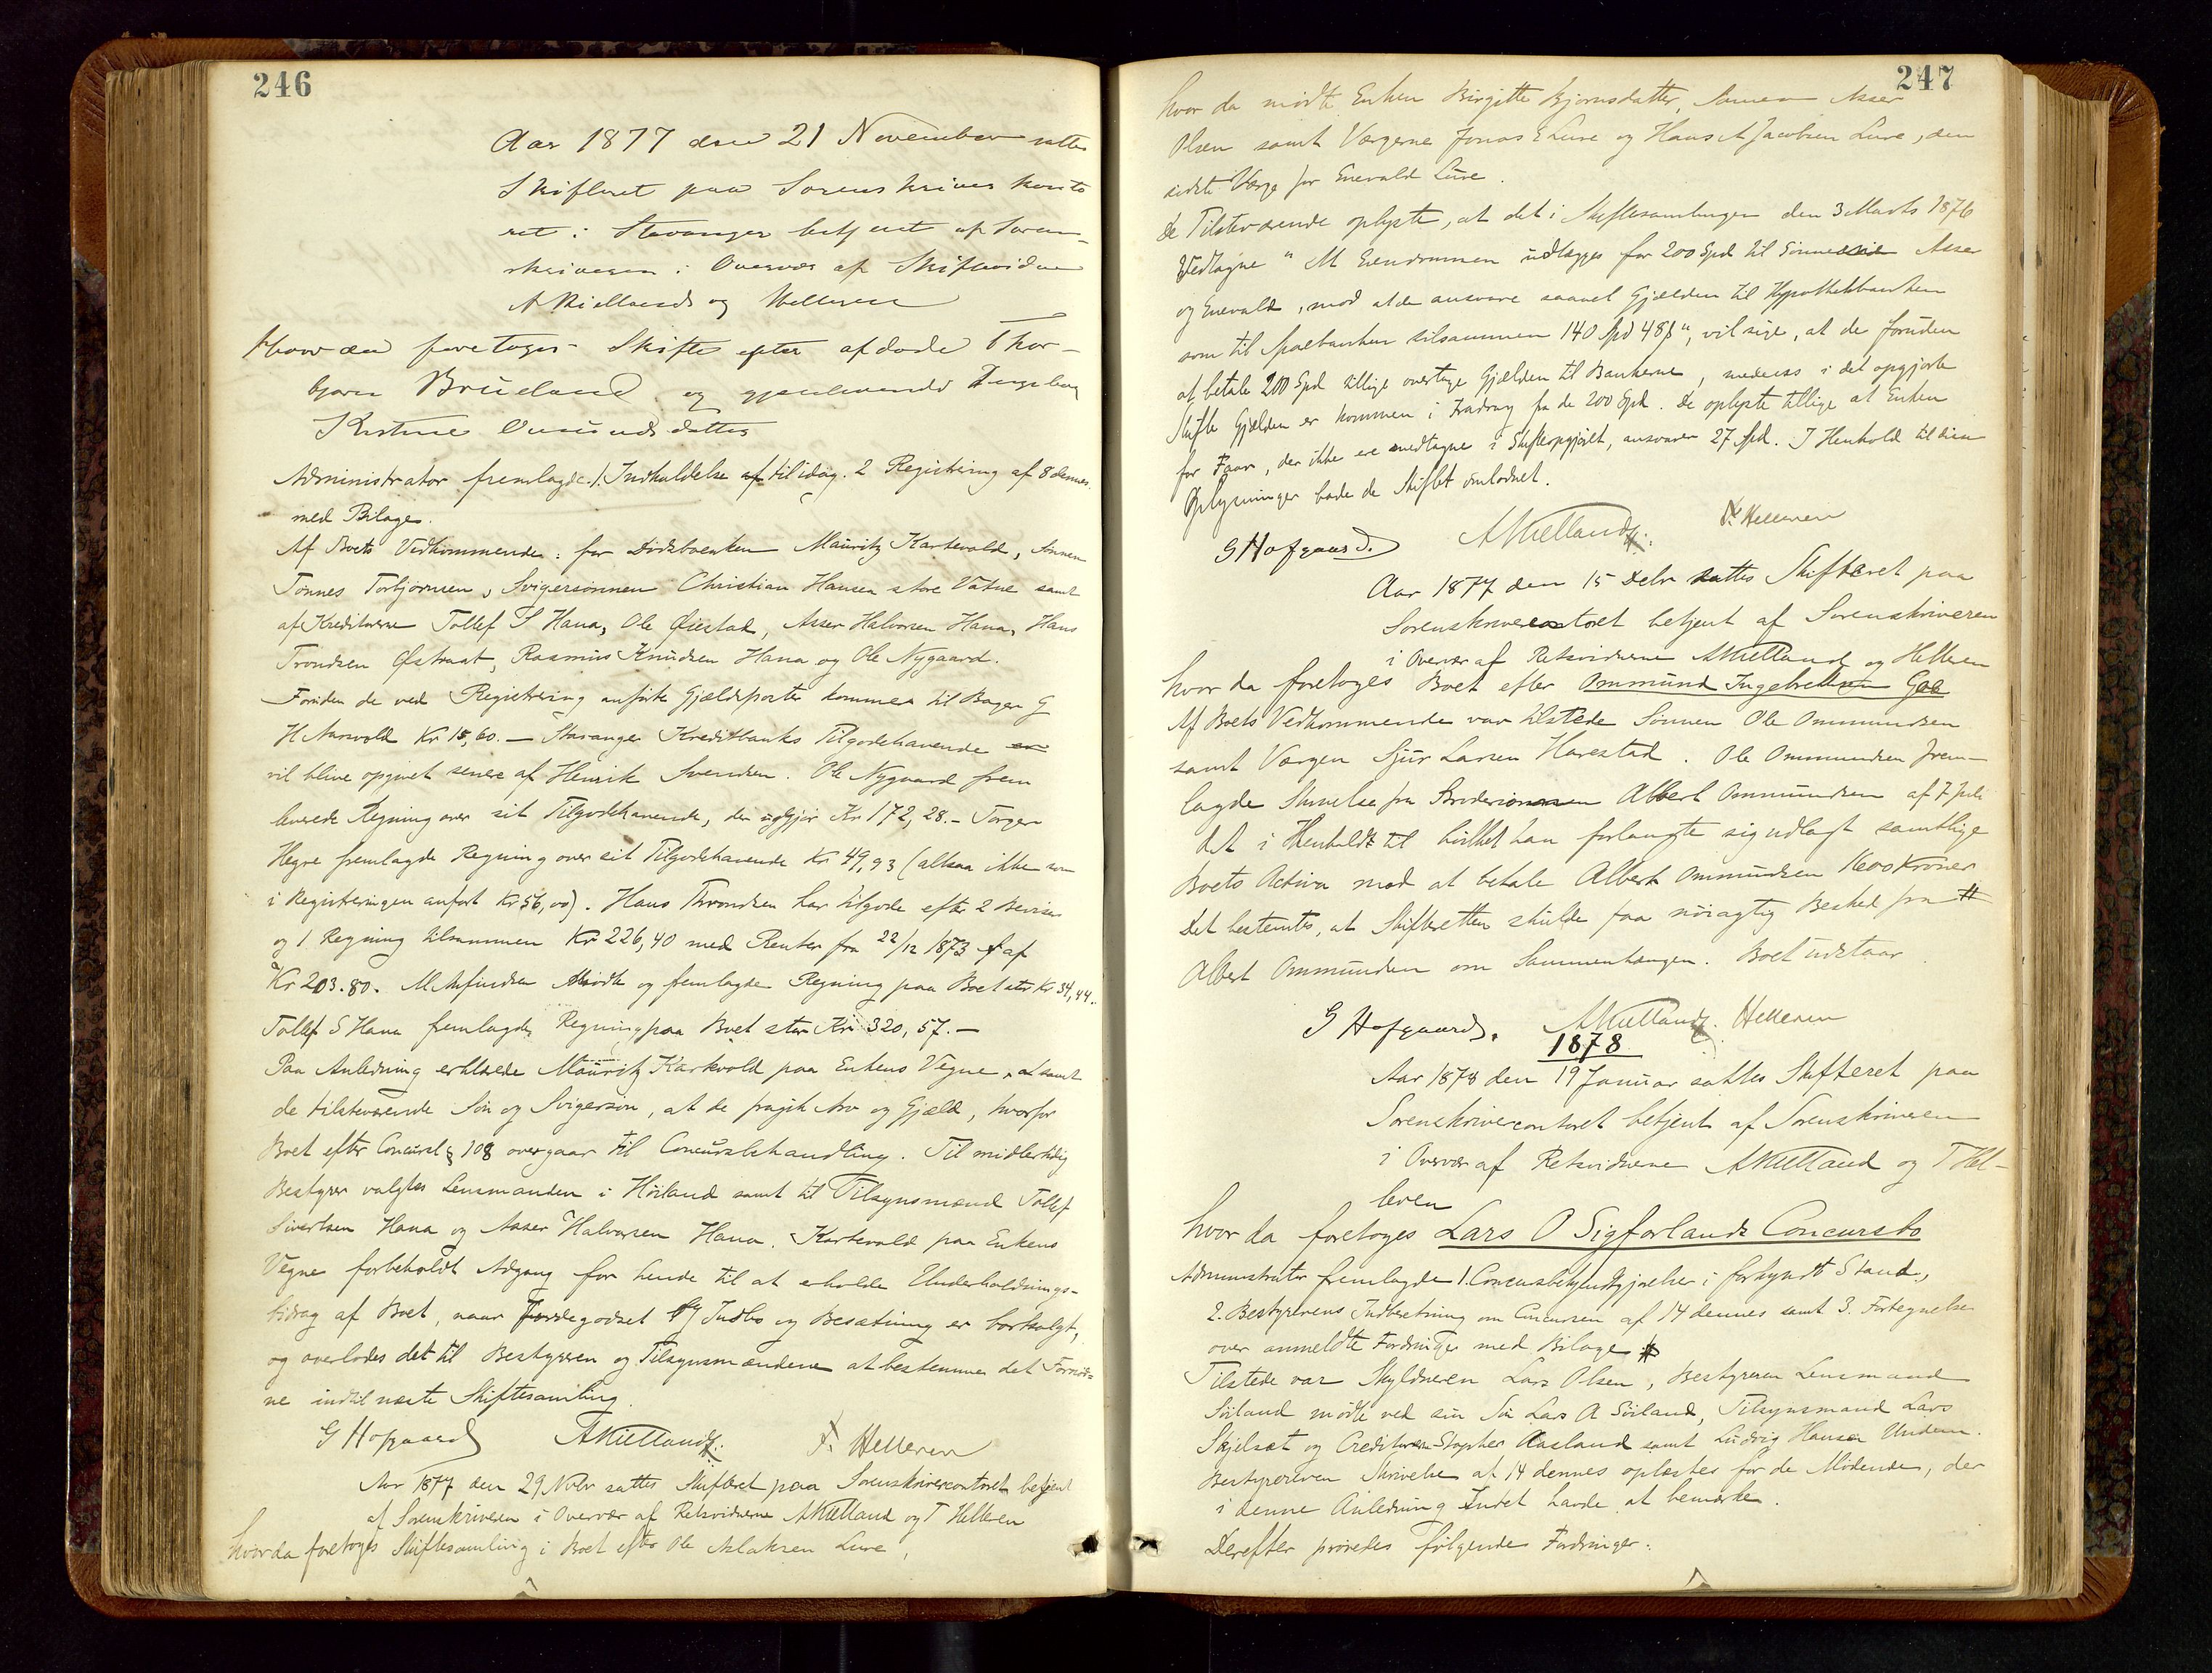 246
Aar 1877 den 21 November sattes
Skifteret paa Sorenskriver konto
ret i Stavanger betjent af Soren-
skriveren i Overvær af Skiftevidne
A Kielland og Helleren
hvor da foretoges Skifte efter afdøde Thor-
bjørn Brueland og gjenlevende Ingeborg
Kistine Omundsdatter
Administrator fremlagde 1. Indkaldelse af til idag. 2 Registrering af 8 dennes
med Bilage.
Af Boets Vedkommende: for Dødsboenken Mauritz Kartevold, Sønnen
Tønnes Torbjørnsen, Svigersønnen Christian Hansen store Vatne samt
af Kreditorerne Tollef S Hana, Ole Øiestad, Asser Halvorsen Hana, Hans
Trondsen Østraat, Rasmus Knudsen Hana og Ole Nygaard.
Foruden de ved Registrering anførte Gjældsposter kommer til Bager G
H Aarvold Kr 15,60. — Stavanger Kreditbanks Tilgodehavende
vil blive opgivet senere af Henrik Svendsen. Ole Nygaard frem
leverede Regning over sit Tilgodehavende, der udgjør Kr 172,28. — Torger
Hegre fremlagde Regning over sit Tilgodehavende Kr 49,93 (altsaa ikke som
i Registeringen anført Kr 56,00). Hans Throndsen har tilgode efter 2 Beviser
og 1 Regning tilsammen Kr 226,40 med Renter fra 22/12 1873 af
Kr 203.80. M Asfindsen Mødte og fremlagde Regning paa Boet stor Kr 34,44.
Tollef S Hana fremlagde Regning paa Boet stor Kr 320,57. —
Paa Anledning erklærede Mauritz Kartevold paa Enkens Vegne, samt
de tilstedeværende Søn og Svigersøn, at de fragik Arv og Gjæld, hvorfor
Boet efter Concursl § 108 overgaar til Concursbehandling. Til midlertidig
Bestyrer valgtes Lensmanden i Høiland samt til Tilsynsmænd Tollef
Sivertsen Hana og Asser Halvorsen Hana. Kartevold paa Enkens
Vegne forbeholdt Adgang for hende til at erholde Underholdnings-
bidrag af Boet, naar Jordegodset og Indbo og Besætning er bortsolgt,
og overlodes det til Bestyreren og Tilsynsmændene at bestemme det Fornød-
ne indtil næste Skiftesamling.
G Hofgaard AKielland T. Helleren
Aar 1877 den 29 Novbr sattes Skifteret paa Sorenskrivercontoret betjent
af Sorenskriveren i Overvær af Retsvidnerne AKielland og T Helleren
hvor da foretoges Skiftesamling i Boet efter Ole Aslaksen Lure,
247
hvor da mødte Enken Birgitte Bjørnsdatter, Sønnen Asser
Olsen samt Værgerne Jonas E Lure og Hans A Jacobsen Lure, den
sidste Værge for Enevald Lure.
De Tilstedværende oplyste, at det i Skiftesamlingen den 3 Marts 1876
Vedtagne " At Eiendommen udlægges for 200 Spd til Sønnerne Asser
og Enevald, mod at de ansvare saavel Gjælden til Hypothekbanken
som til Sparebanken tilsammen 140 Spd 48ß", vil sige, at de foruden
at betale 200 Spd tillige overtage Gjælden til Bankerne, medens i det opgjorte
Skifte Gjælden er kommen i Fradrag fra de 200 Spd. De oplyste tillige at Enken
for Faar, der ikke ere medtagne i Skifteopgjøret, ansvarer 27 Spd. I Henhold til disse
Oplysninger bade de Skiftet omlodnet.
G Hofgaard. AKielland T. Helleren
Aar 1877 den 15 Debr sattes Skifteret paa
Sorenskrivercontoret betjent af Sorenskriveren
i Overvær af Retsvidnerne AKielland og Helleren
hvor da foretoges Boet efter Ommund Ingebretsen
Af Boets Vedkommende var tilstede Sønnen Ole Ommundsen
samt Værgen Sjur Larsen Harestad. Ole Ommundsen frem-
lagde Skrivelse fra Albert Ommundsen af 7 Juli
det i Henhold til hvilket han forlangte sig udlagt samtlige
Boets Activa mod at betale Albert Ommundsen 1600 Kroner
Det bestemtes, at Skifteretten skulde faa nøiagtig Besked fra
Albert Ommundsen om Sammenhængen. Boet udstaar.
G Hofgaard. AKielland. Helleren
1878
Aar 1878 den 19 Januar sattes Skifteret paa
Sorenskrivercontoret betjent af Sorenskriveren
i Overvær af Retsvidnerne AKielland og T Hel-
leren
hvor da foretoges Lars O Sigfarlands Concursbo
Administrator fremlagde 1. Concursbekjendtgjørelser i forkyndt Stand,
2. Bestyrerens Indberetning om Concursen af 14 dennes samt 3. Fortegnelse
over anmeldte Fordringer med Bilage
Tilstede var Skyldneren Lars Olsen, Bestyreren Lensmand
Søiland mødte ved sin Søn Lars A Søiland, Tilsynsmand Lars
Skjelset og Creditorerne Stopher Aasland samt Ludvig Hansen
Bestyrerens Skrivelse af 14 dennes oplæstes for de Mødende, der
i denne Anledning Intet havde at bemærke.
Derefter prøvedes følgende Fordringer: